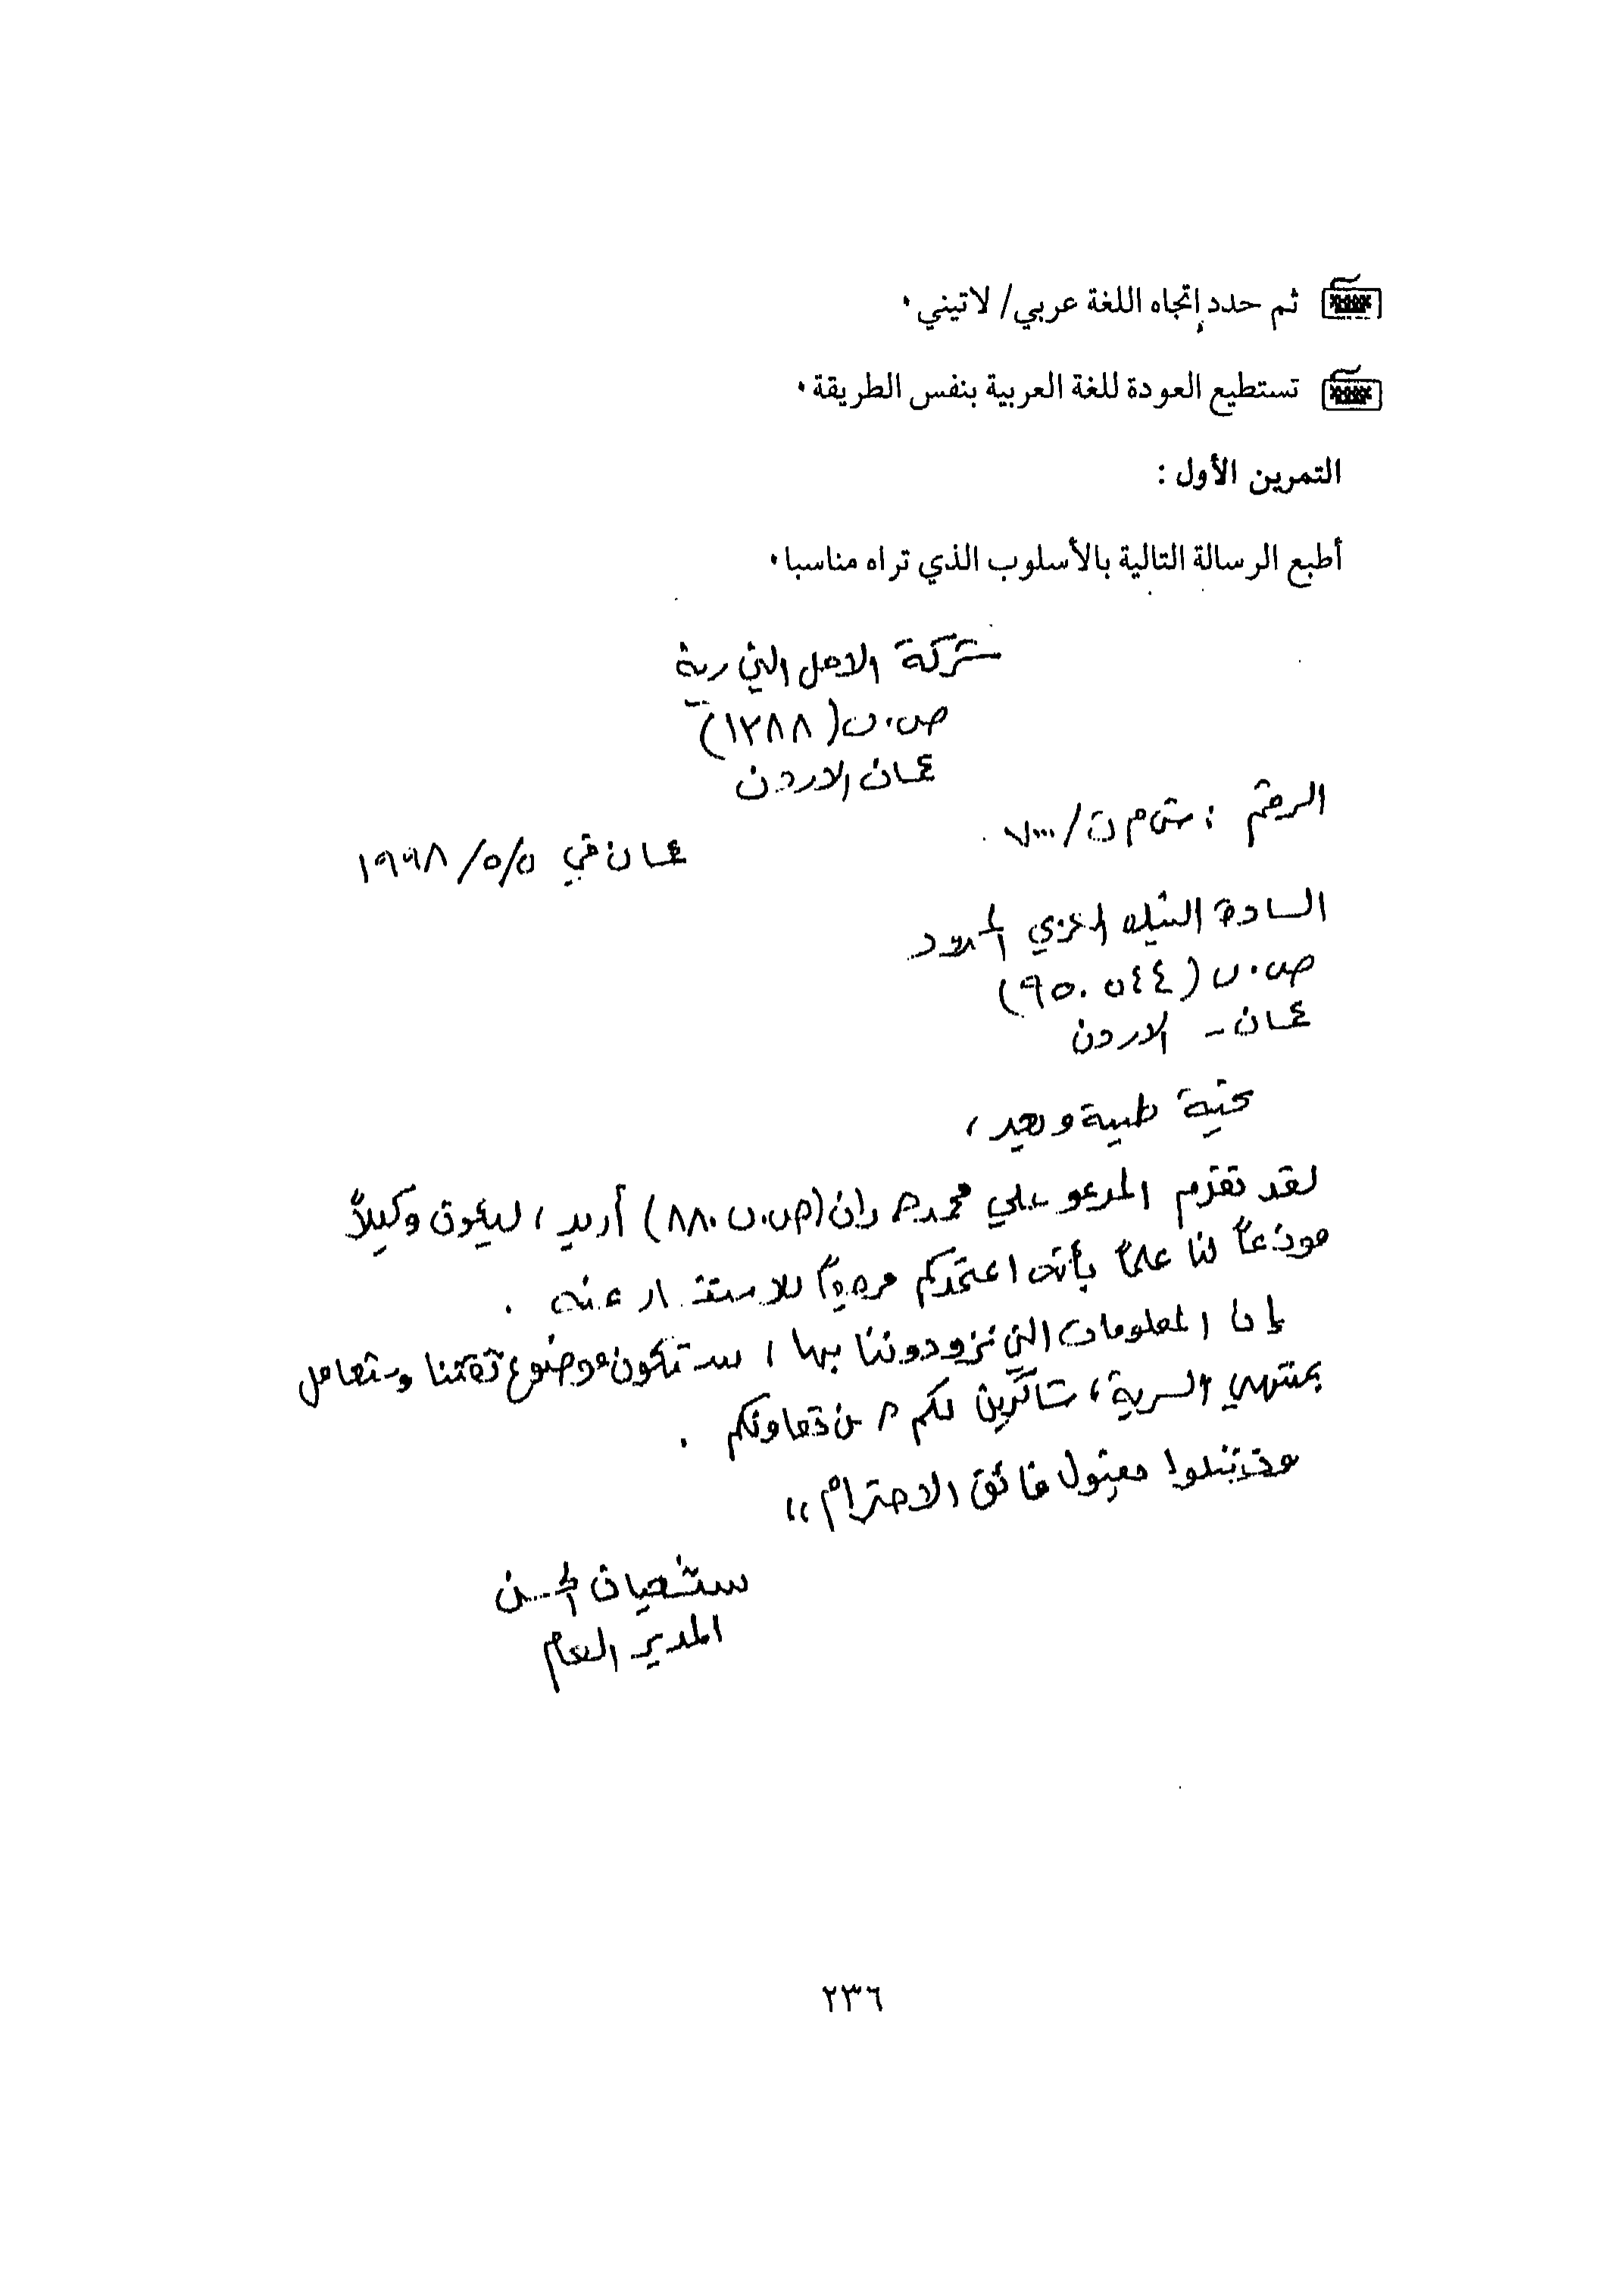 ثم حدد إتجاه اللغة عربي/ لاتيني٠
تستطيع العودة للغة العربية بنفس الطريقة٠
التمرين الأول :
أطبع الرسالة التالية بالأسلوب الذي تراه مناسبا٠
شركة الامل التجارية
ص.ب (١٢٨٨)
عمان الاردن
الرقم : ش م ت/٧٠٠٠
عمان في ٥/٥/١٩٩٨
السادة البنك المركزي المحدود
ص.ب (٩٥٠٥٤٤)
عمان - الاردن
تحية طيبة وبعد ،
لقد تقدم المدعو علي محمد (ص.ب ٨٨٠) أربد ، ليكون وكيلاً
موزعاً لنا علماً بأنه اعتمدكم للاستفسار عنه .
إن المعلومات التي تزودوننا بها ، ستكون موضوع ثقتنا وستعامل
بمنتهى السرية ، شاكرين لكم حسن تعاونكم .
وتفضلوا بقبول فائق الاحترام ،،
شعبان الحسن
المدير العام
٢٣٦